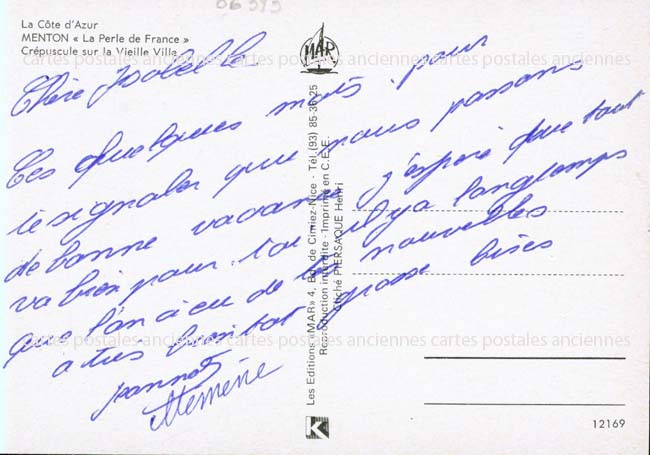 06 595
La Côte d'Azur
MENTON « La Perle de France »
Crépuscule sur la Vieille Ville
MAR
cartes postales anciennes cartes postales anciennes cartes postales anciennes
Chère Isabelle
Ces quelques mots pour
te signaler que nous passons
de bonne vacance j'espère que tout
va bien pour toi il y a longtemps
que l'on a eu de tes nouvelles
a très bientot grosse bises
Mémérie
Les Editions «MAR» 4, Bd. de Cimiez-Nice - Tél.(93) 85-36-25
Reproduction interdite - Imprimé en C.E.E.
Cliché PIERSAQUE Henri
cartes postales anciennes cartes postales anciennes cartes postales anciennes
K
12169